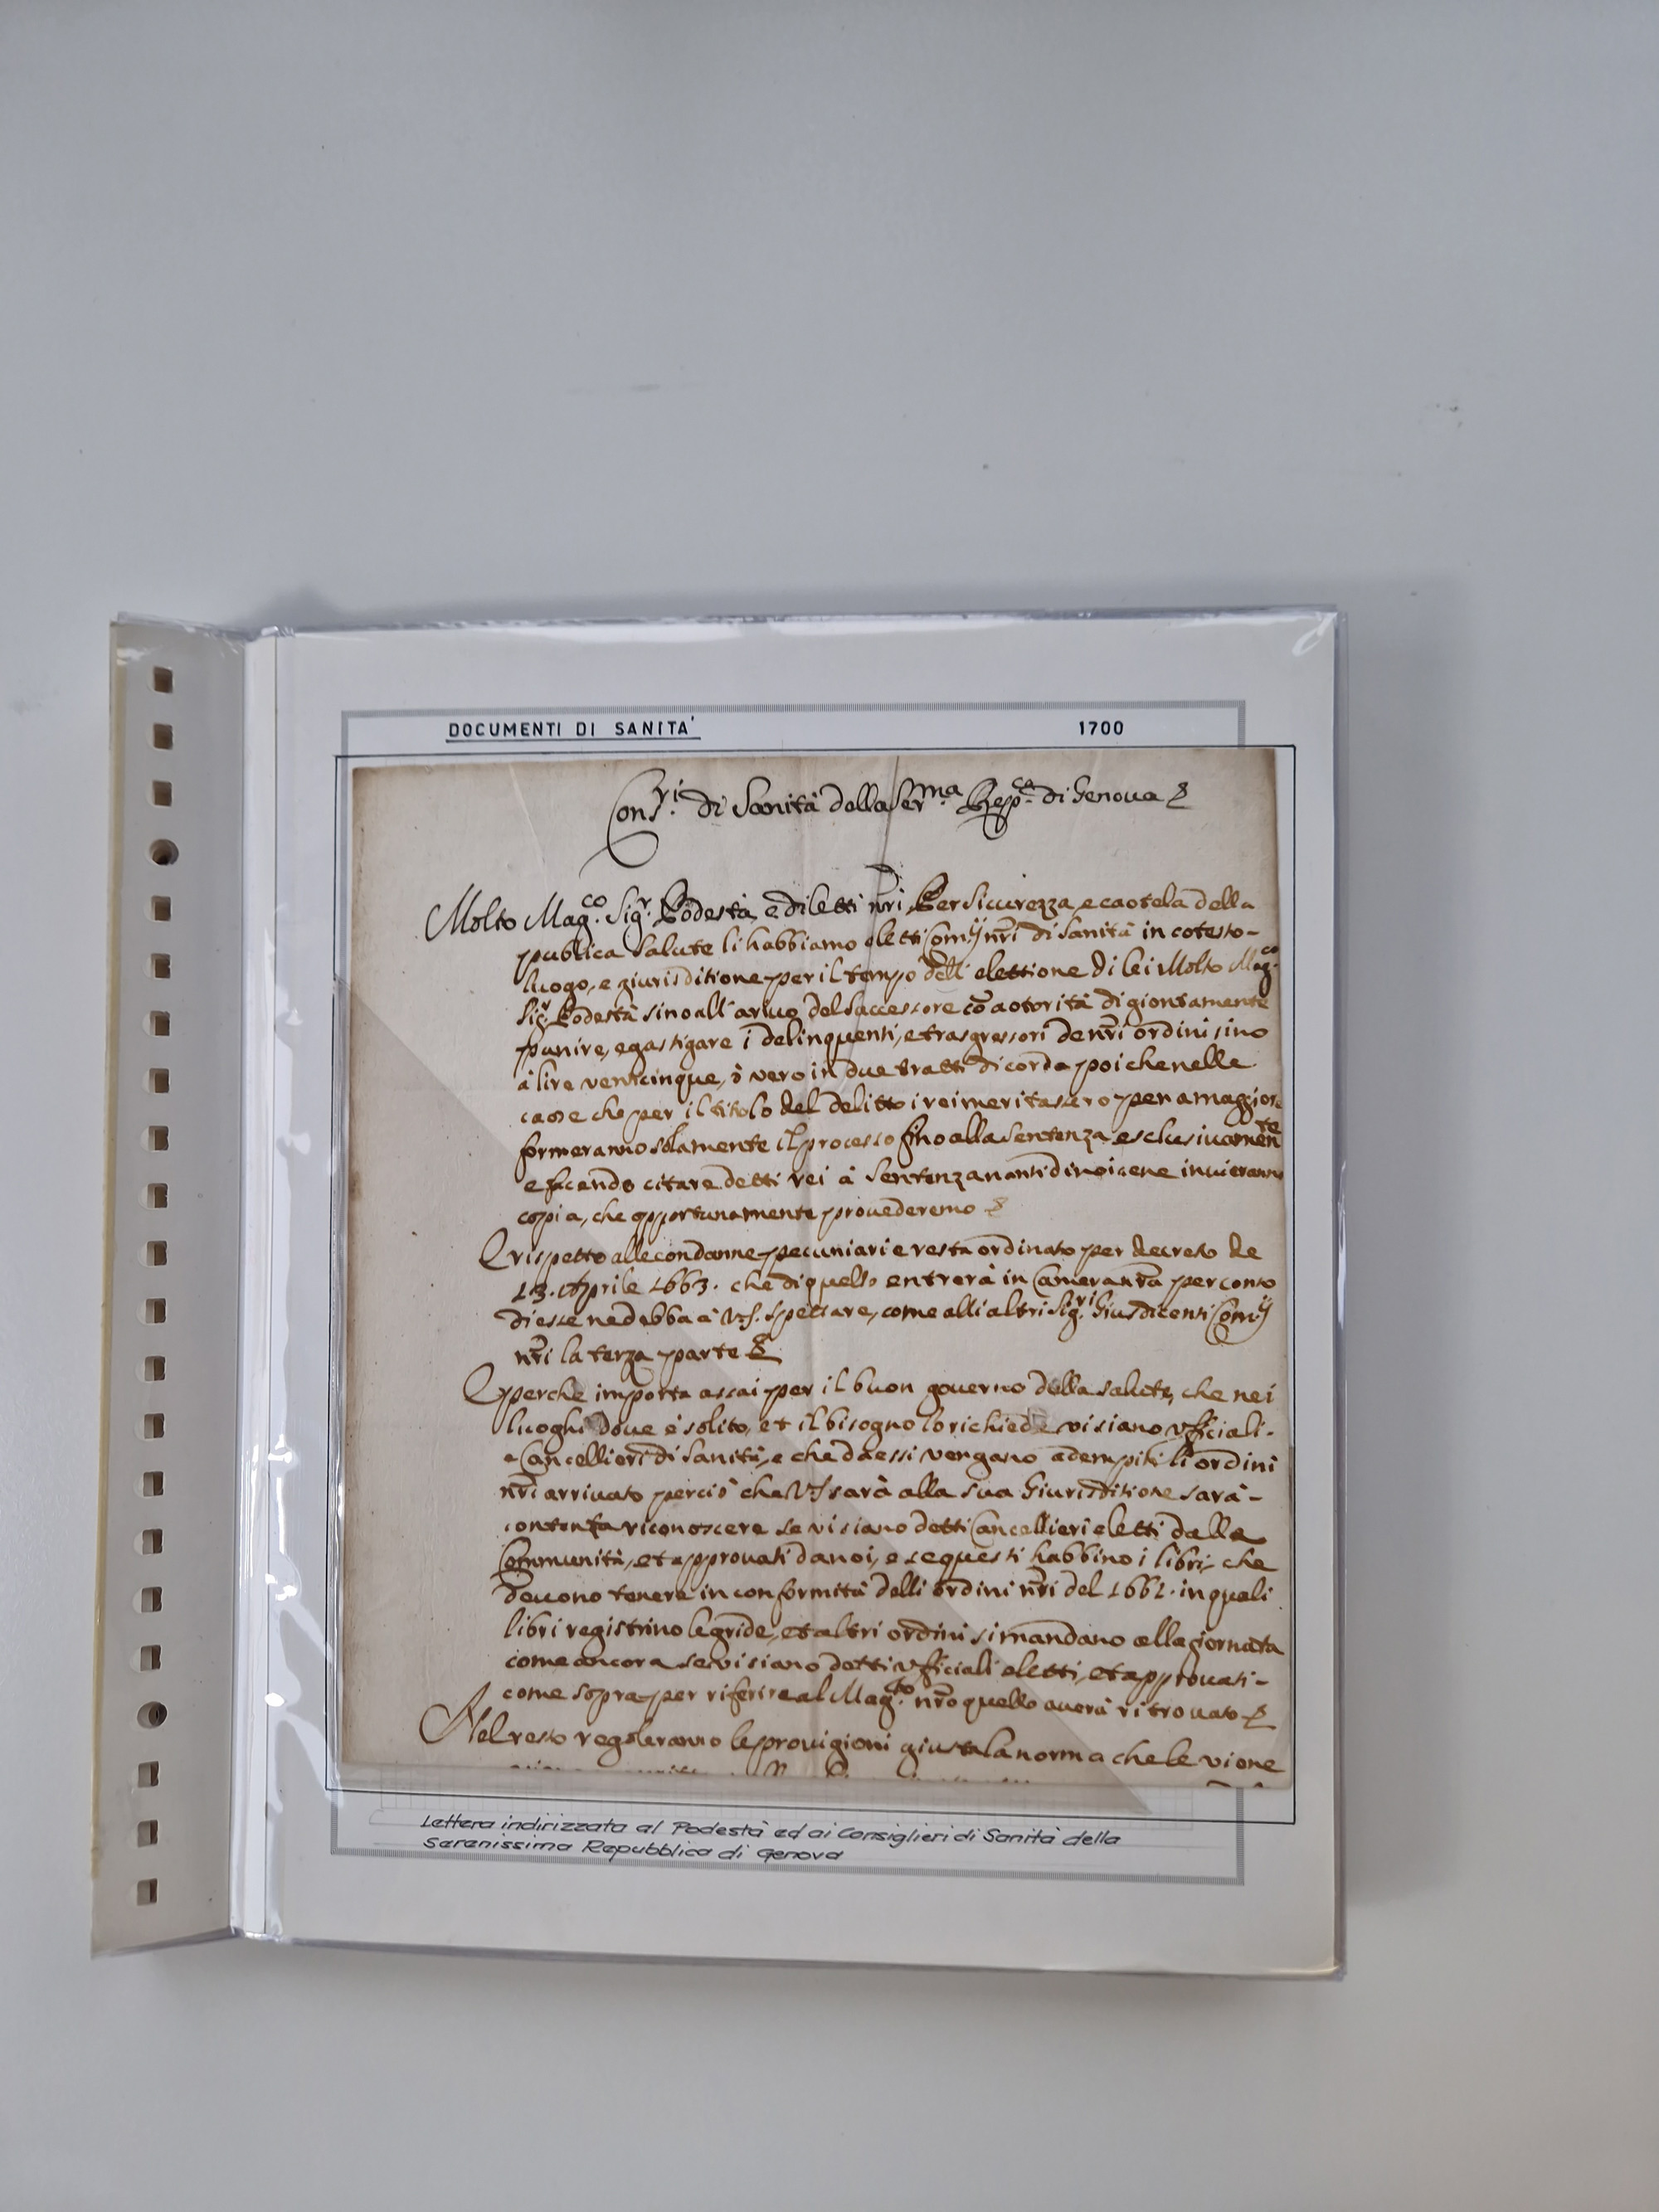 DOCUMENTI DI SANITA' 1700
Cons.ri di Sanità della Ser.ma Rep.ca di Genova &
Molto Mag.co Sig.r Podestà, e diletti nr̃i, Per sicurezza, e caotela della
publica salute li habbiamo eletti Com.ij nr̃i di Sanità in cotesto-
luogo, e giurisditione per il tempo dell' elettione di lei Molto Mag.co
Sig.r Podestà sino all' arivo del saccessore cõ aotorità di giontamente
punire, e gastigare i delinquenti, e trasgressori de nr̃i ordini sino
à lire venticinque, ò vero in due tratti di corda poiche nelle
caose che per il titolo del delitto i rei meritassero pena maggiore
formeranno solamente il processo fino alla sentenza esclusivamente
e facendo citare detti rei à sentenza nanti di noi cene invieranno
copia, che opportunamente provederemo &
E rispetto alle condanne pecuniarie resta ordinato per decreto de
13. Aprile 1663. che di quello entrerà in Camera nr̃a per conto
di esse ne debba à V.S. spettare, come alli altri Sig.ri Giusdicenti Com.ij
nr̃i la terza parte &
E perche importa assai per il buon governo della salute, che nei
luoghi dove è solito, et il bisogno lo richiede vi siano vfficiali-
e Cancellieri di Sanità, e che da essi vengano adempiti li ordini
nr̃i arrivato perciò che V.S. sarà alla sua Giurisditione sarà-
contenta riconoscere se vi siano detti Cancellieri eletti dalle
Communità, et approvati da noi, e se questi habbino i libri, che
devono tenere in conformità delli ordini nr̃i del 1661. in quali
libri registrino le gride, et altri ordini si mandano alla giornata
come ancora se vi siano detti vfficiali eletti, et approvati-
come sopra per riferire al Mag.to nr̃o quello averà ritrovato &
Nel resto regoleranno le provigioni giusta la norma che le viene
Lettera indirizzata al Podestà ed ai Consiglieri di Sanità della
Serenissima Repubblica di Genova